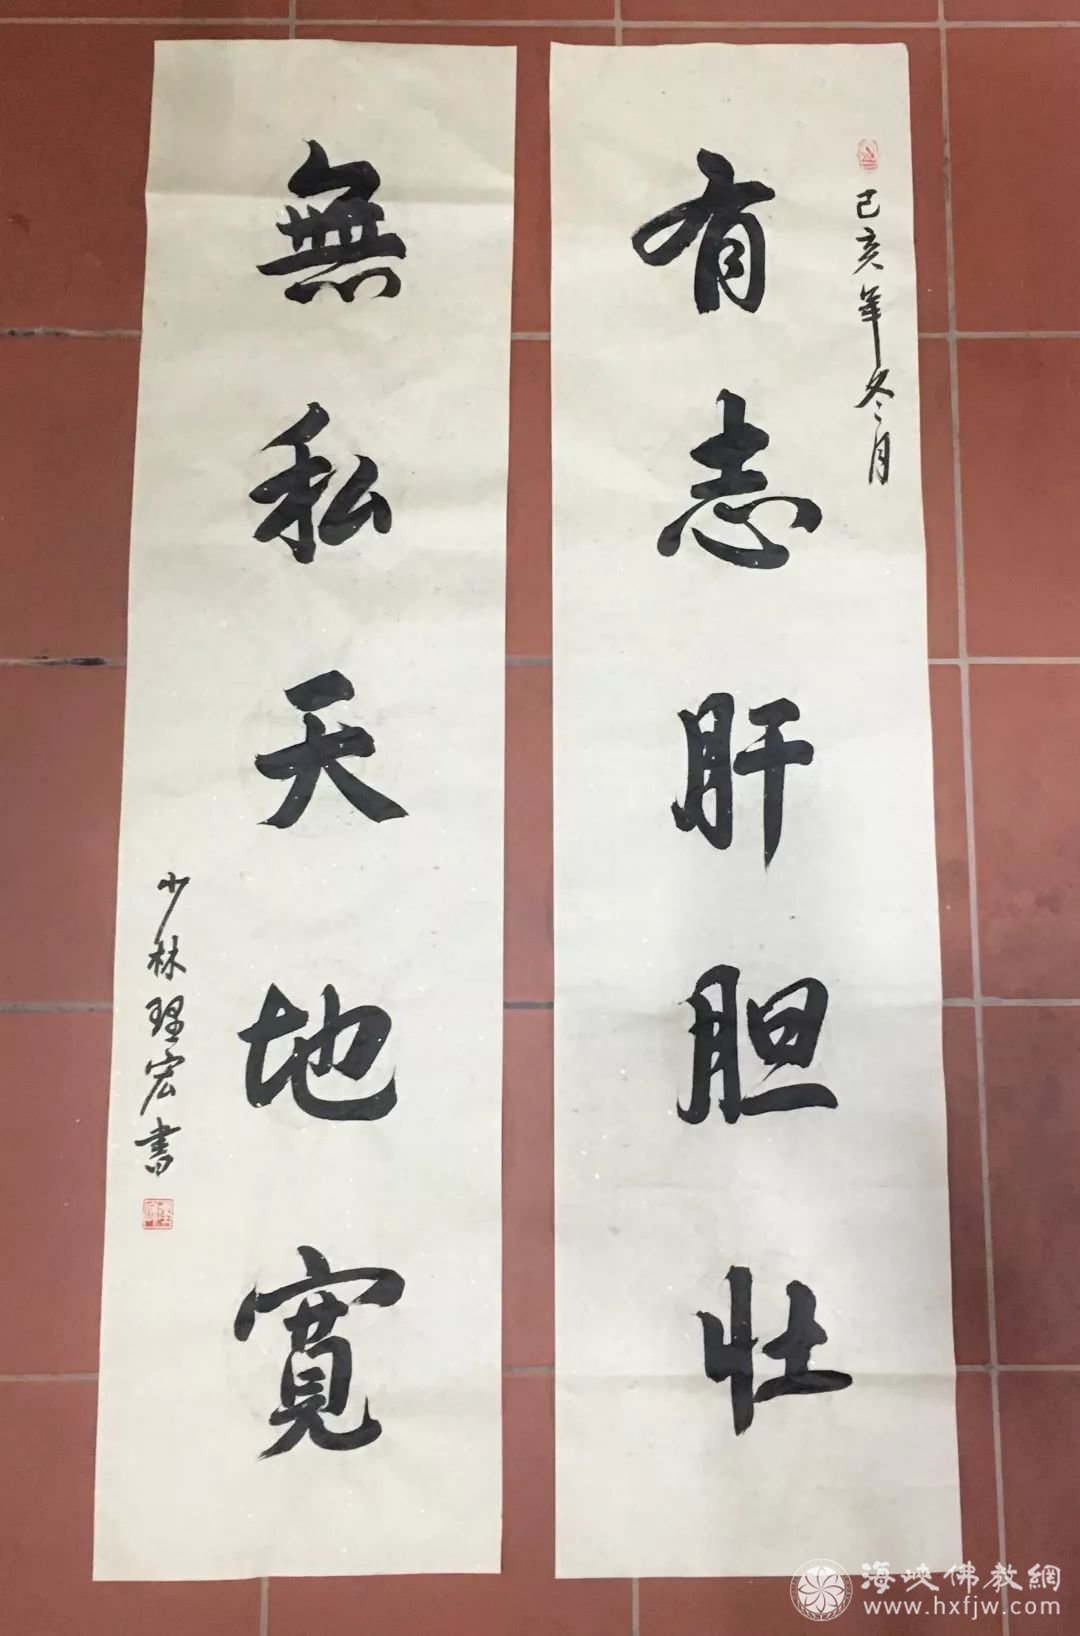 己亥年冬月
有志肝胆壮
無私天地寬
少林理宏書
海峡佛教網
www.hxfjw.com